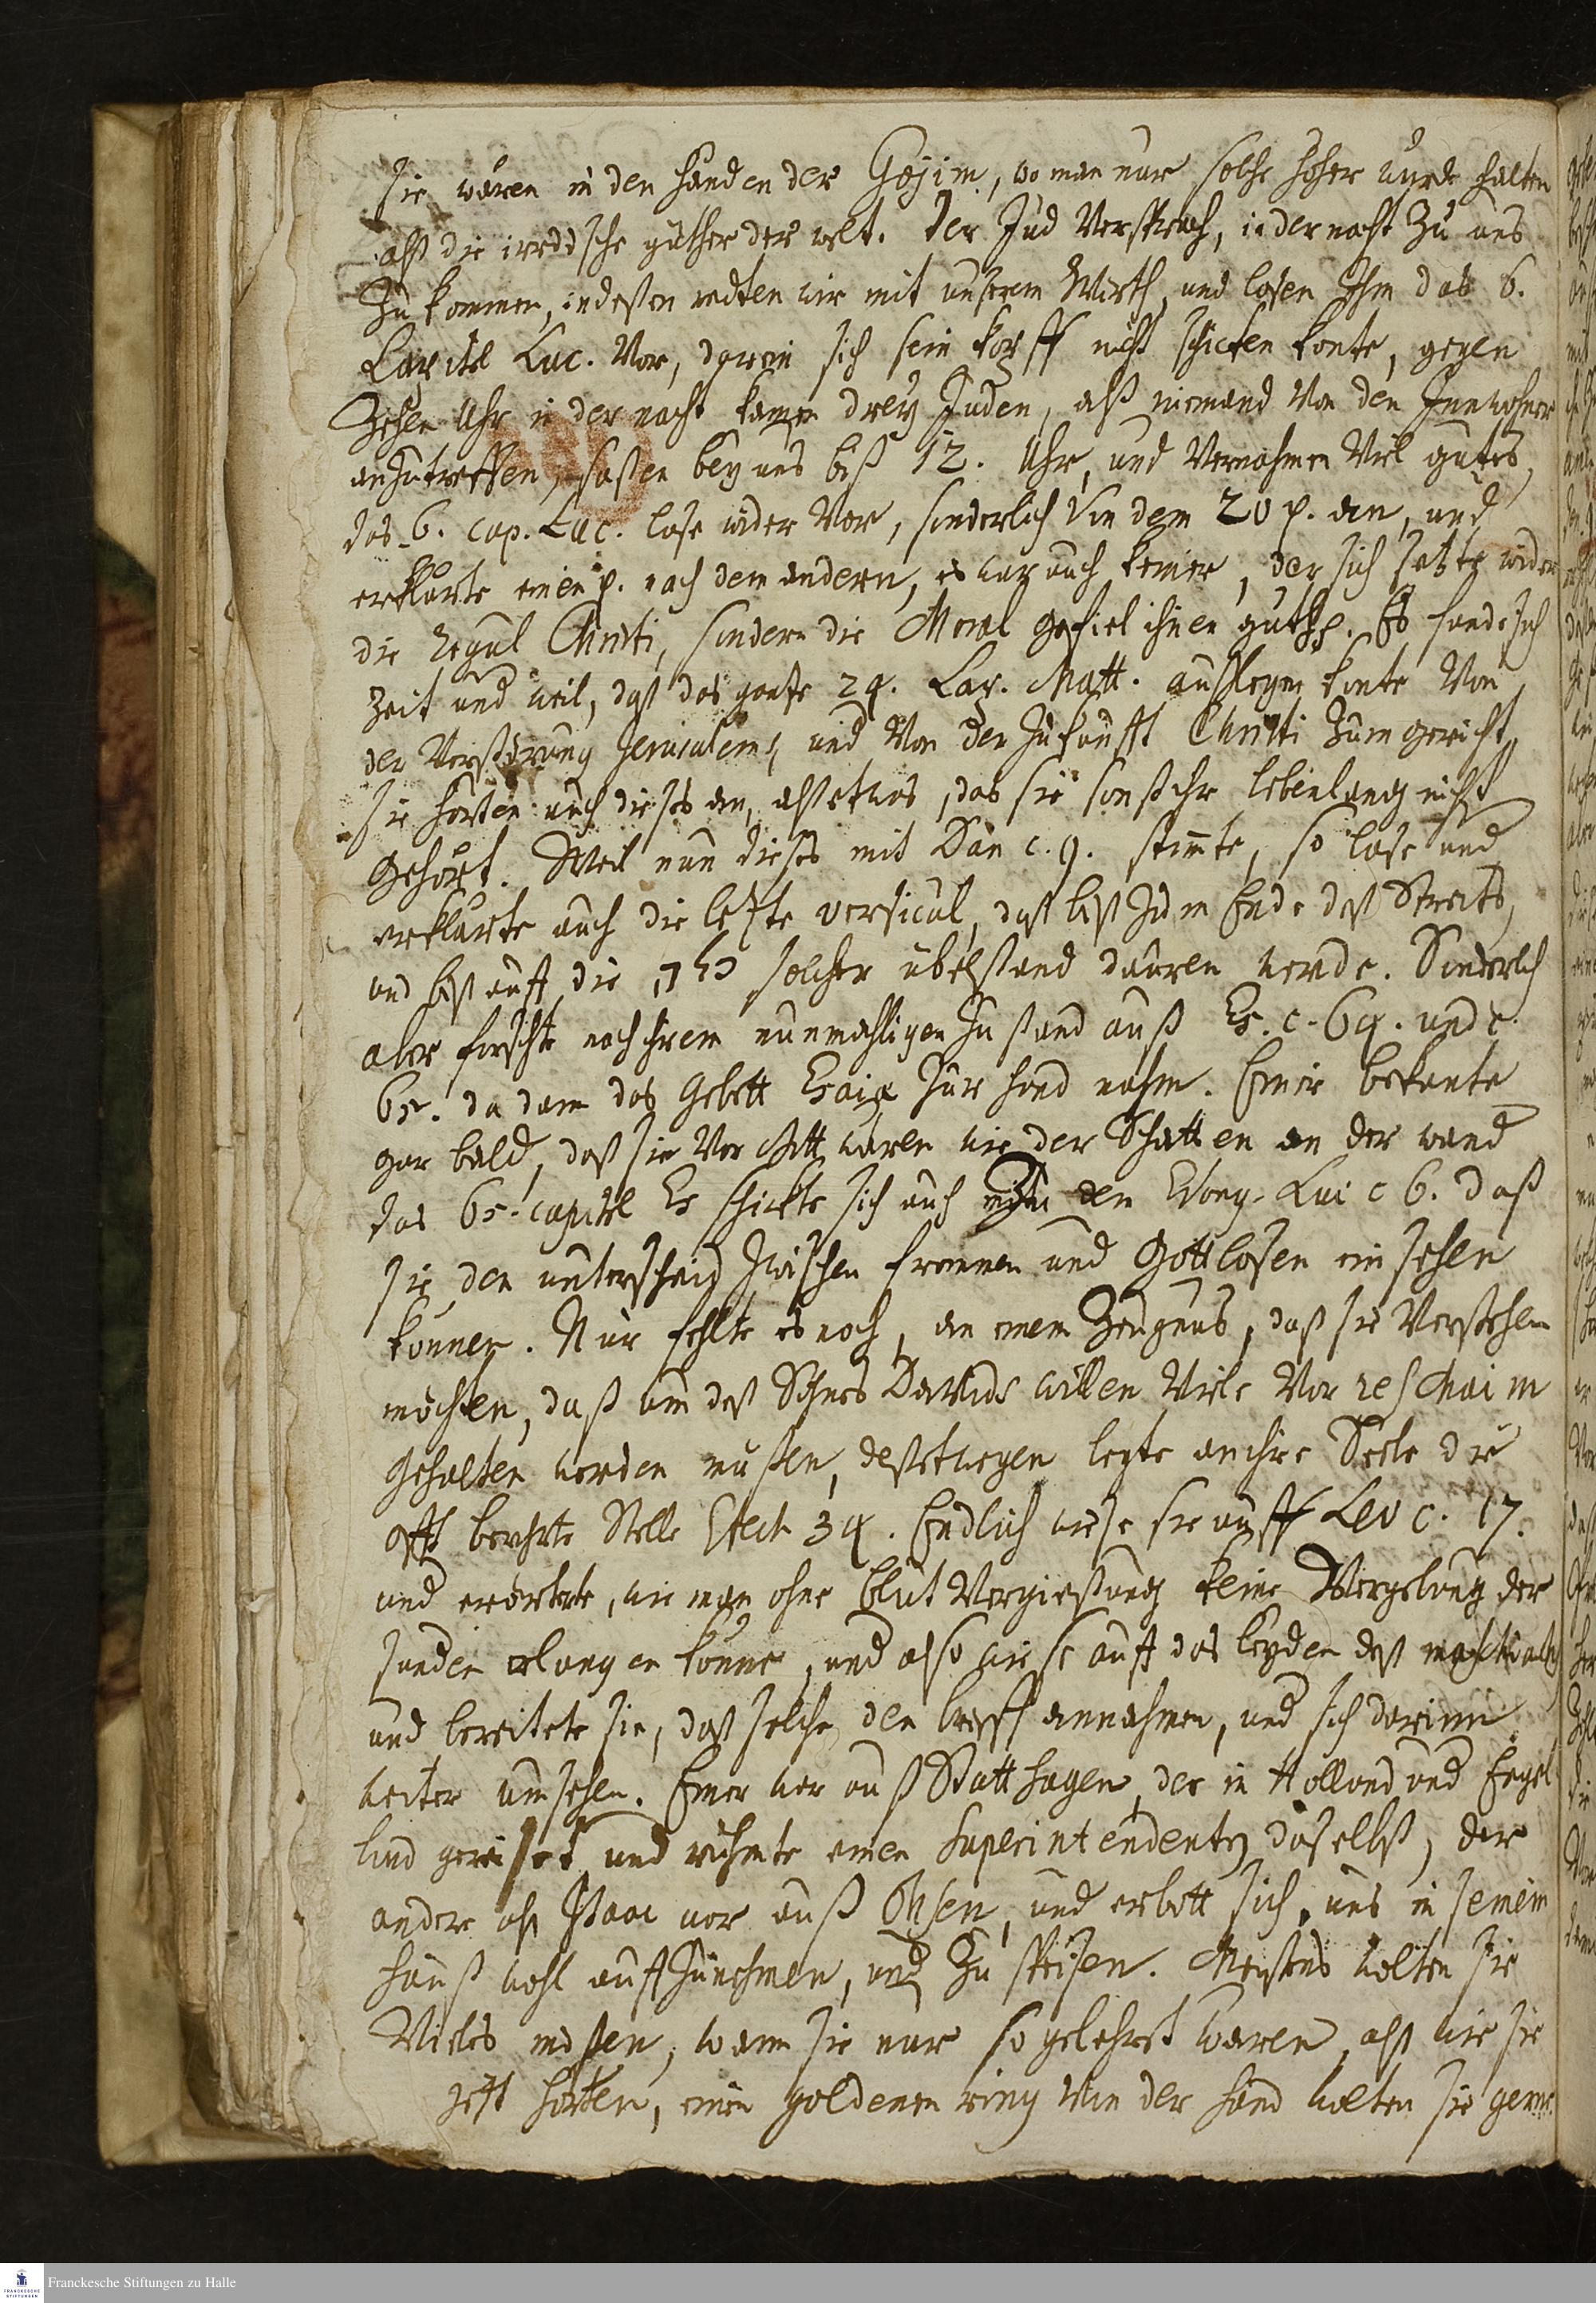 sie wären in den händen der Gojim, wo man nur solche höher würde halten
alß die irrdische güther der welt. Der Jud versprach, in der nacht zu uns
zu kommen, indeßen redten wir mit unserem Wirth, und lasen Ihm das 6.
Capitel Luc. vor, darein sich sein kopff nicht schicken konte, gegen
zehen Uhr in der nacht kamen drey Juden, alß niemand von den Innwohner
anzutreffen, saßen bey uns biß 12. Uhr, und vernahmen viel gutes,
das 6. cap. Luc. lase wider vor, sonderlich von dem 20 v. an, und
erklärte einen v. nach dem andern, es war auch keiner, der sich setzte wider
die Regul Christi, sondern die Moral gefiel ihnen gutt. Es fande sich
Zeit und weil, daß das gantze 24. Cap. Matt. außlegen konte von
der Verstörung Jerusalems, und von der Zukunfft Christi zum gericht,
sie hörten auch dieses an, alß etwas, das sie sonst ihr lebenlang nicht
gehört. Weil nun dieses mit Dan c. 9. stimte, so lase und
erklärte auch die letzte versicul, daß biß zum Ende deß Streits,
und biß auff die כלה solcher übelstand dauren werde. Sonderlich
aber forschte nach ihrem nunmahligen Zustand auß Es. c. 64. und c.
65. da dann das Gebett Esaiæ zur hand nahm. Einer bekante
gar bald, daß sie vor Gott wären wie der Schatten an der wand
das 65. capitel Es schickte sich auch zu dem Evang. Luc c 6. daß
sie den unterscheid zwischen frommen und Gottlosen einsehen
können. Nur fehlte es noch, an einem Zeugnus, daß sie verstehen
möchten, daß um deß Sohnes Davids willen viele vor reschaim
gehalten werden müßen, deßetwegen legte an ihre Seele die
offt berührte Stelle Ezech 34. Endlich wiese sie auff Lev c. 17.
und erörterte, wie man ohne blut vergießung keine Vergebung der
sünden erlangen könne, und also wiese auff das leyden deß maschiach
und bereitete sie, daß solche den brieff annahmen, und sich darinn
weiter umsehen. Einer war auß Statthagen, der in Holland und Engel
land gereiset und rühmte einen Superintendenten daselbst, der
andere als Isaac war auß Ohsen, und erbott sich, uns in seinem
hauß wohl auffzunehmen, und zu speisen. Meistens wolten sie
vieles wißen, wann sie nur so gelehrt waren, alß wie sie
jetzt hörten, einen goldenen ring von der hand wolten sie gerne
Franckesche Stiftungen zu Halle